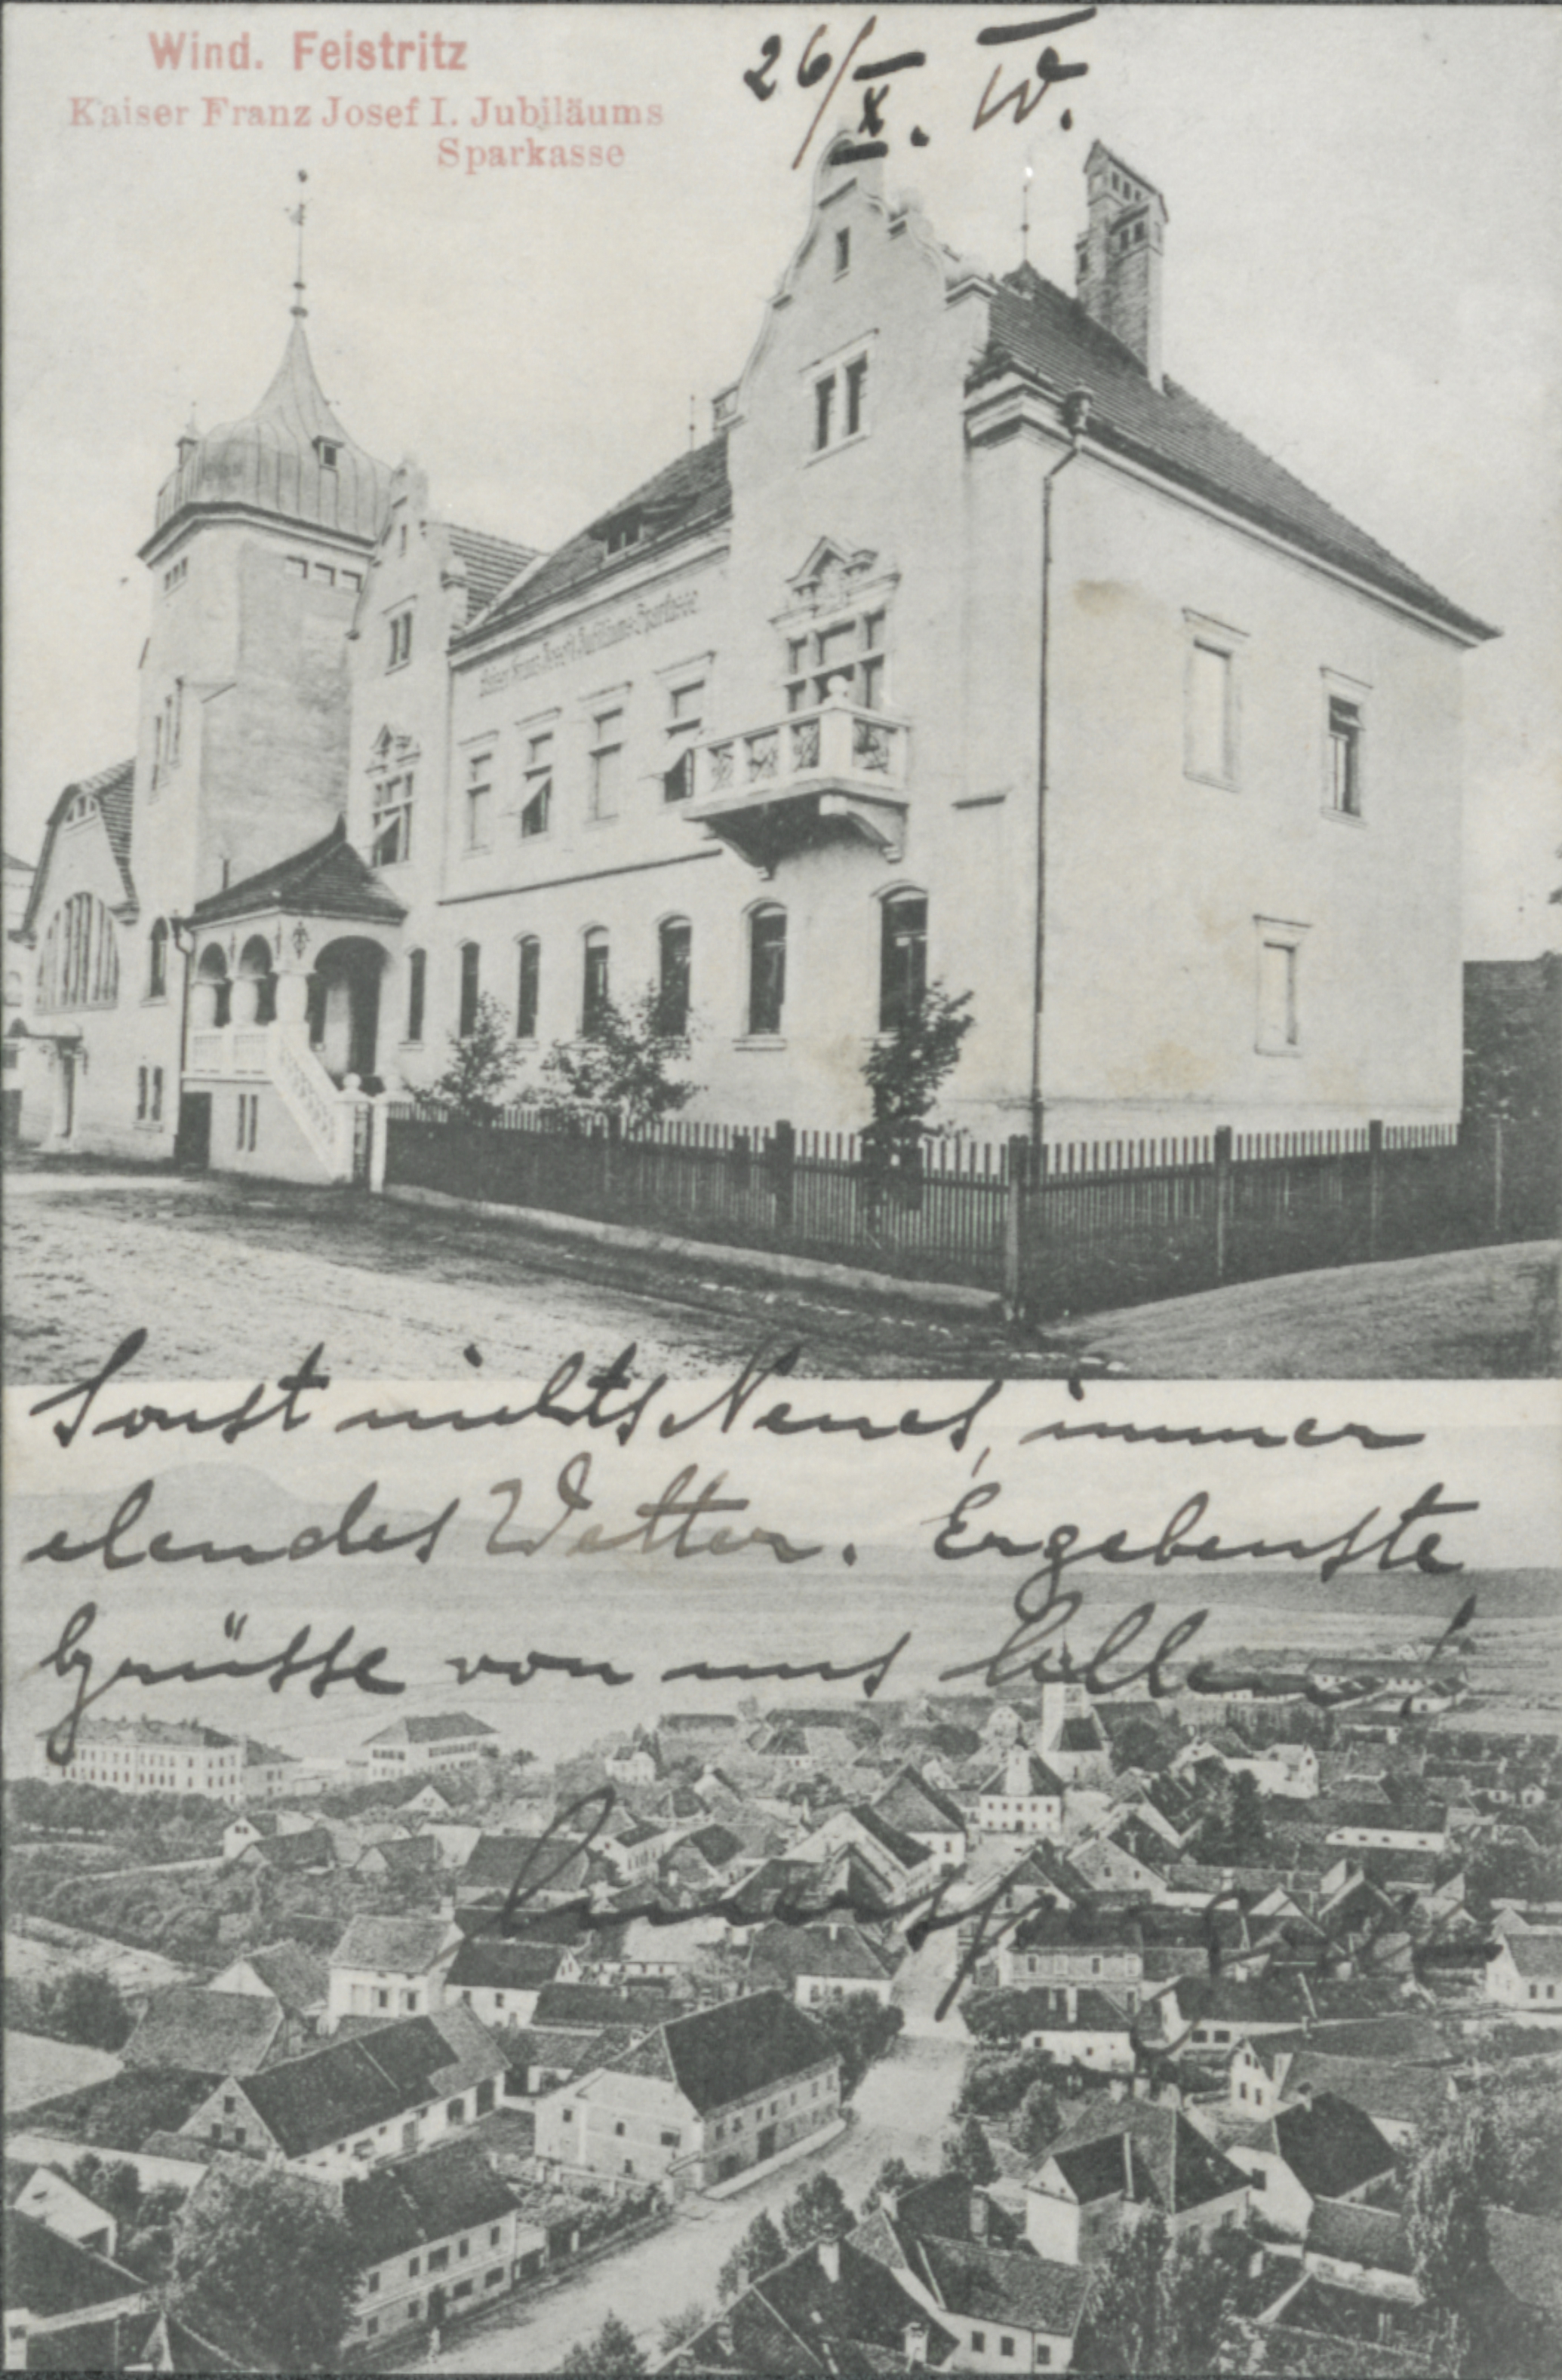 Wind. Feistritz
Kaiser Franz Josef I. Jubiläums
Sparkasse
26/X.
Kaiser Franz Josef I. Jubiläums-Sparkasse
Sonst nichts Neues, immer
elendes Wetter. Ergebenste
Grüsse von uns Allen!